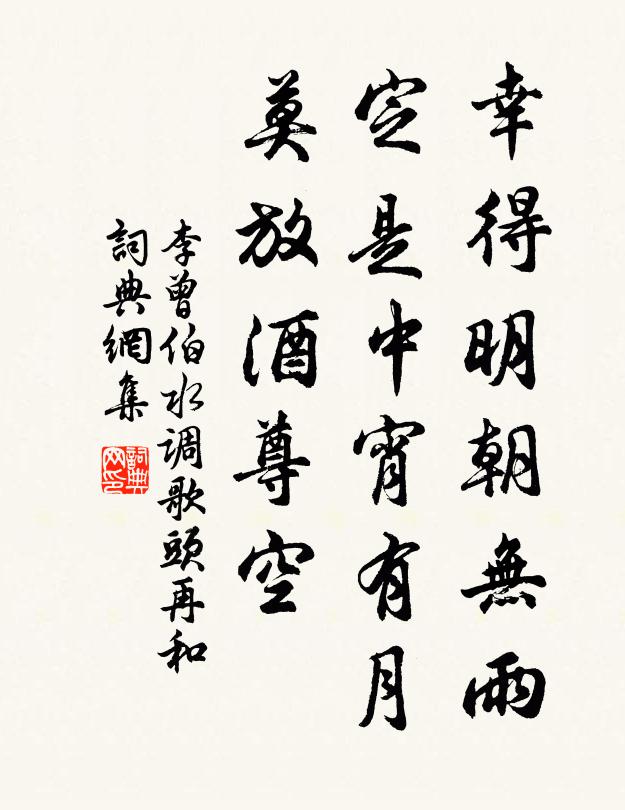 幸得明朝無雨
定是中宵有月
莫放酒尊空
李曾伯水调歌頭再和
詞典網集
詞典网印